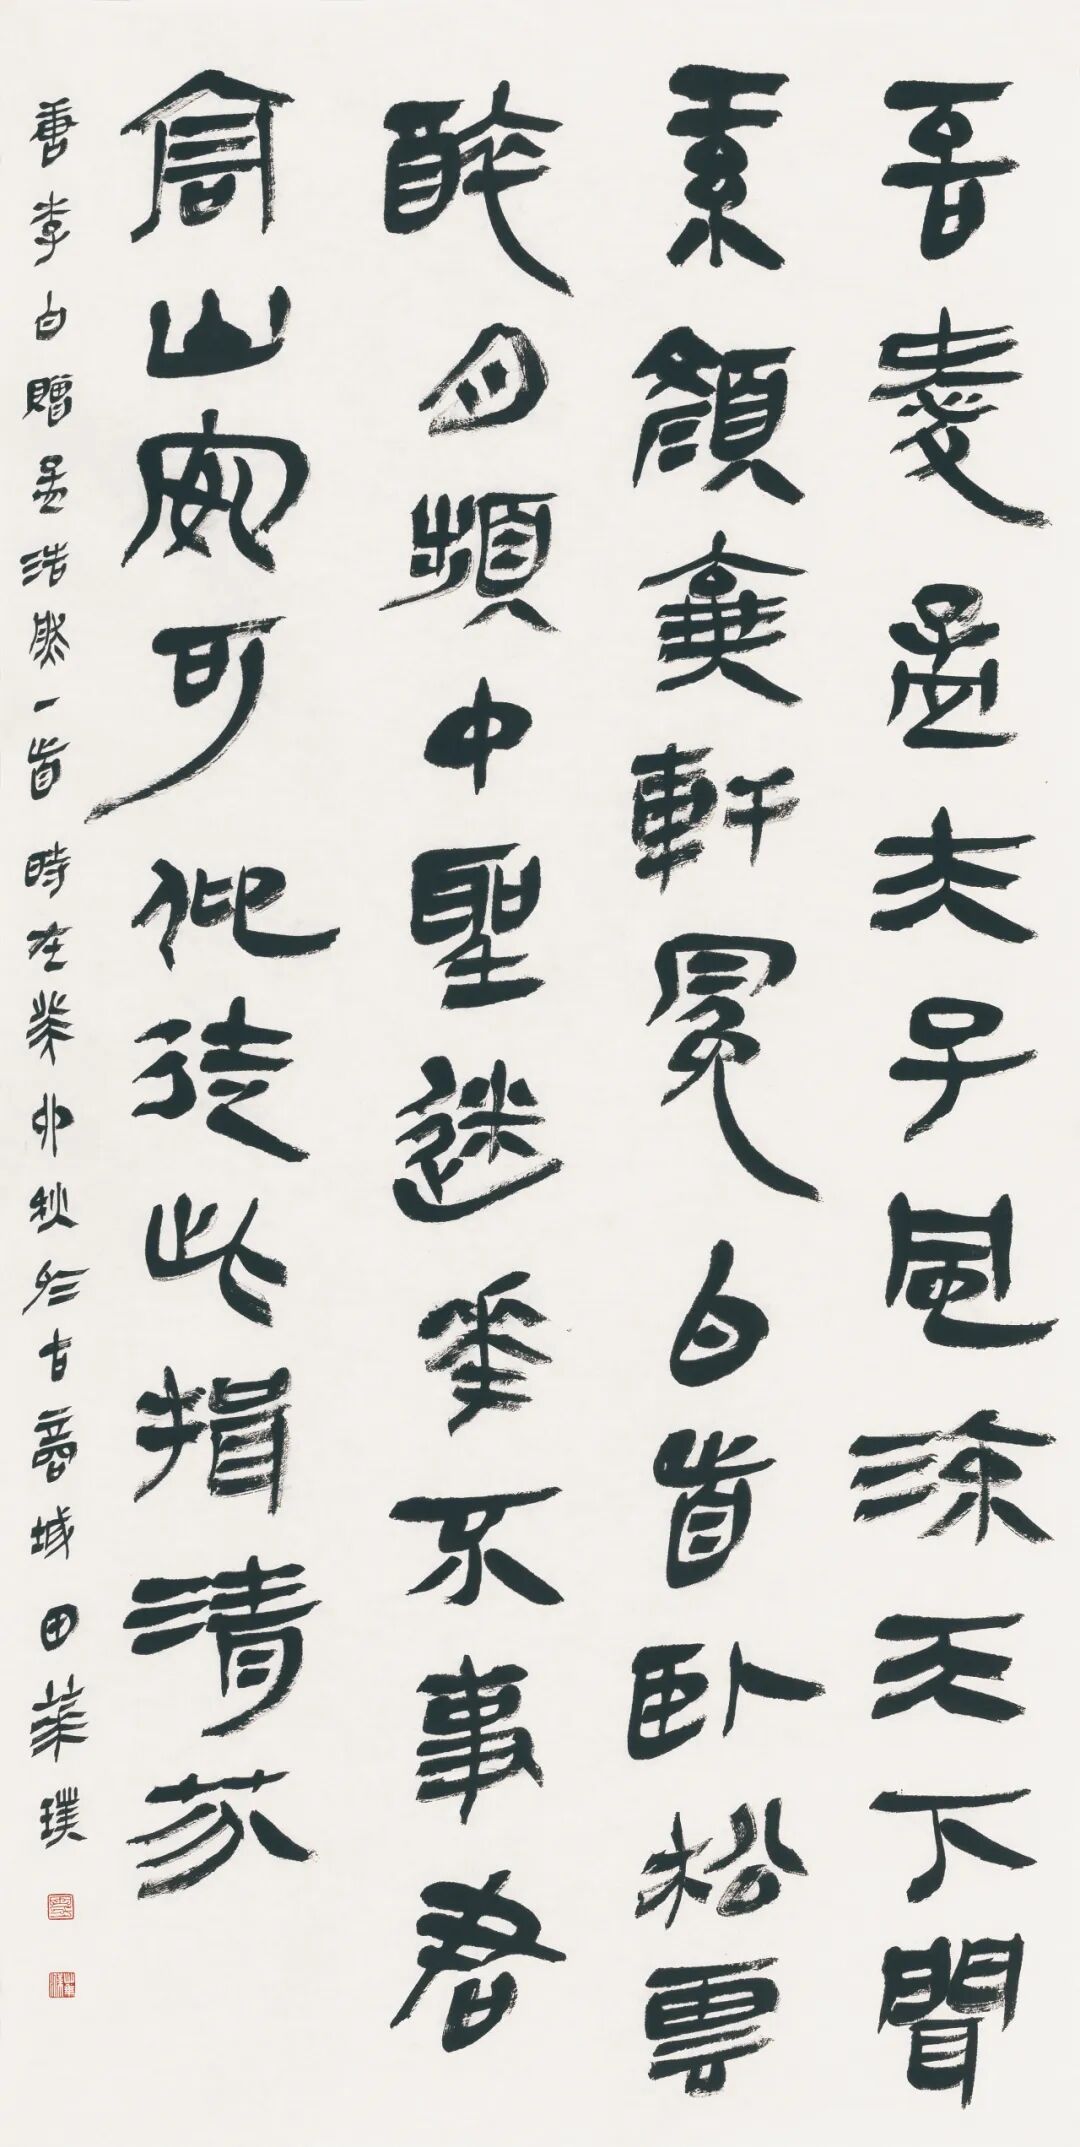 吾愛孟夫子風流天下聞
素顏棄軒冕白首臥松雲
醉月頻中聖迷華不事君
高山安可仰徒此揖清芬
唐李白贈孟浩然一首時在癸卯秋於古商城田璞